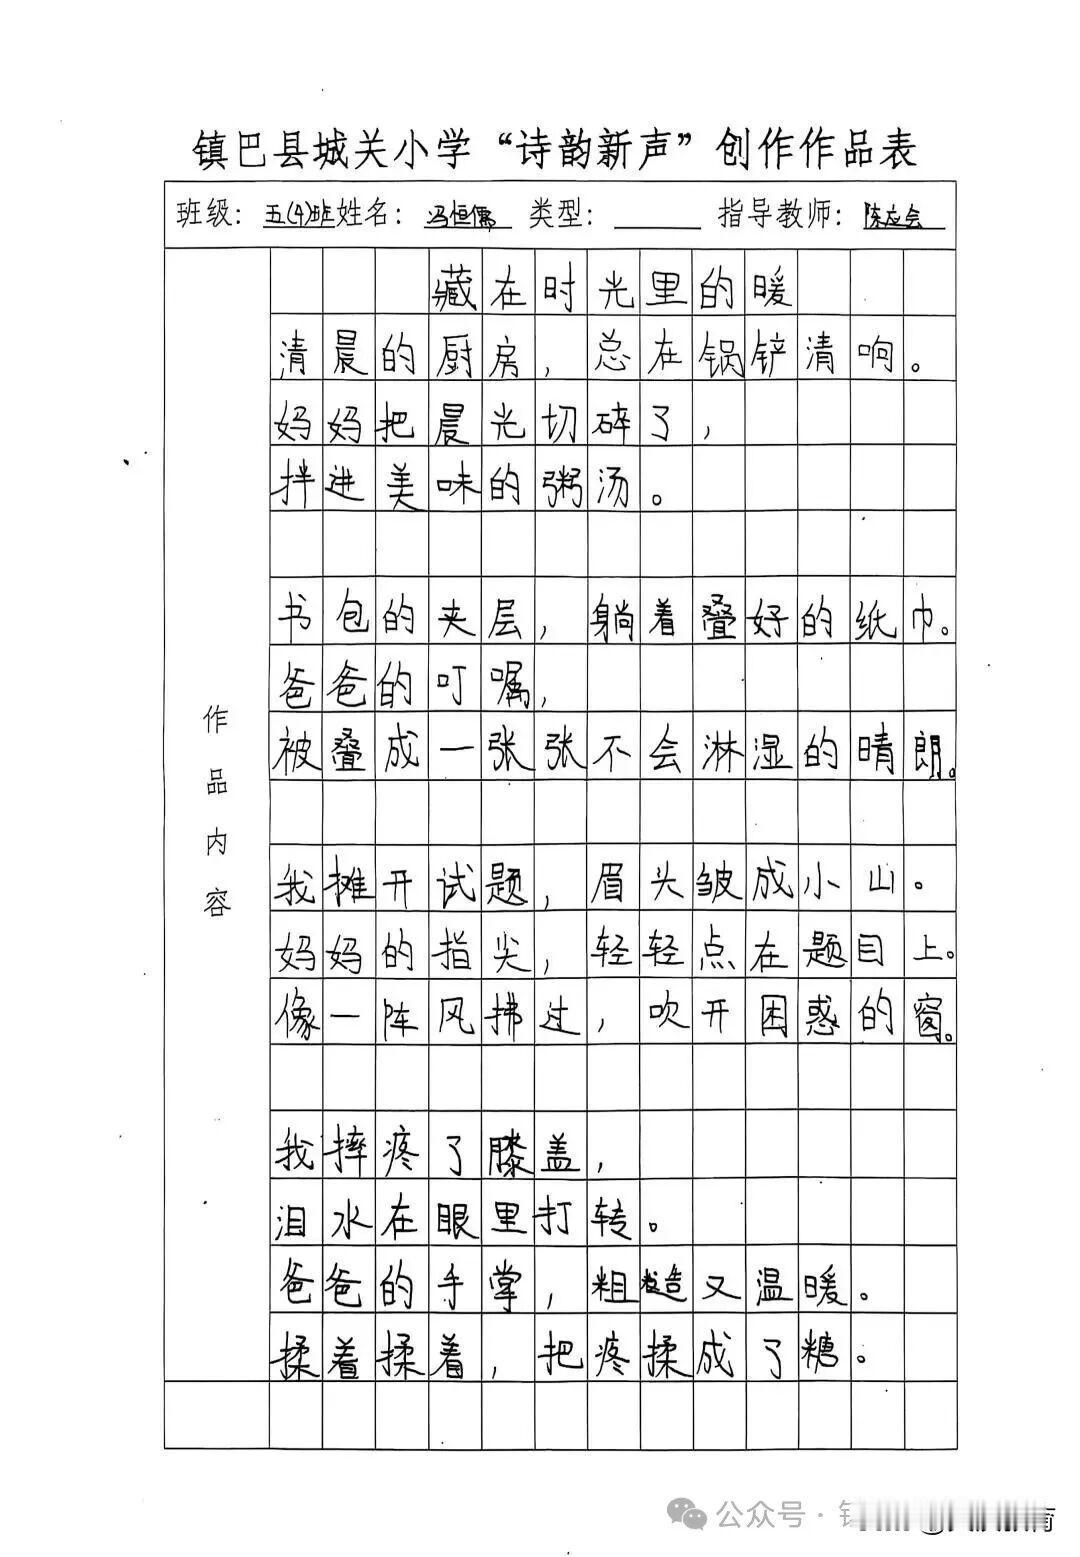 镇巴县城关小学“诗韵新声”创作作品表
班级：五(4)班 姓名：冯恒儒 类型：______ 指导教师：陈应会
作品内容
藏在时光里的暖
清晨的厨房，总在锅铲清响。
妈妈把晨光切碎了，
拌进美味的粥汤。
书包的夹层，躺着叠好的纸巾。
爸爸的叮嘱，
被叠成一张张不会淋湿的晴朗。
我摊开试题，眉头皱成小山。
妈妈的指尖，轻轻点在题目上。
像一阵风拂过，吹开困惑的窗。
我摔疼了膝盖，
泪水在眼里打转。
爸爸的手掌，粗糙又温暖。
揉着揉着，把疼揉成了糖。
公众号·